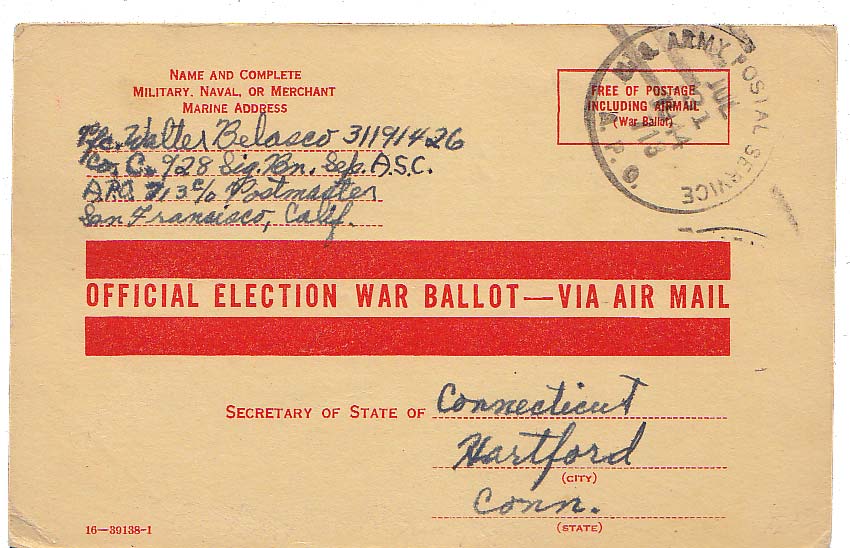 NAME AND COMPLETE
MILITARY, NAVAL, OR MERCHANT
MARINE ADDRESS
Pfc. Walter Belasco 31191426
Co. C. 928 Sig. Bn. Sep. A.S.C.
A.P.O. 713 c/o Postmaster
San Fransisco, Calif.
FREE OF POSTAGE
INCLUDING AIRMAIL
(War Ballot)
U.S. ARMY POSTAL SERVICE
A.P.O.
JUL
21
1944
713
OFFICIAL ELECTION WAR BALLOT—VIA AIR MAIL
SECRETARY OF STATE OF Connecticut
Hartford
(CITY)
Conn.
(STATE)
16—39138-1